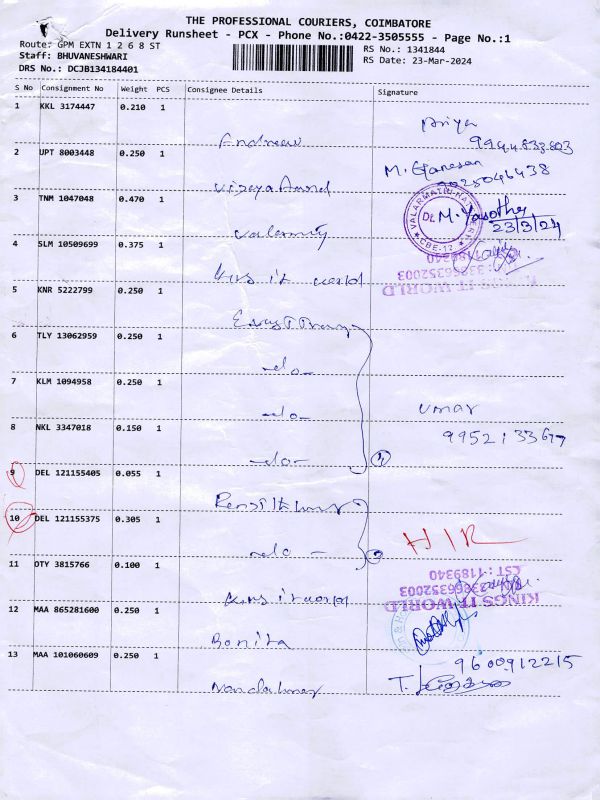 THE PROFESSIONAL COURIERS, COIMBATORE
Delivery Runsheet - PCX - Phone No.:0422-3505555 - Page No.:1
Route: GPM EXTN 1 2 6 8 ST
RS No.: 1341844
Staff: BHUVANESHWARI
RS Date: 23-Mar-2024
DRS No.: DCJB134184401
S No Consignment No Weight PCS Consignee Details Signature
1 KKL 3174447 0.210 1
Andrew Priya
9944833803
2 UPT 8003448 0.250 1
M. Ganesan
Vijaya Anand 9025046438
3 TNM 1047048 0.470 1
VALARMATHI
Dr. M. Yasotha
CBE-12
23/3/24
Valarmathy
4 SLM 10509699 0.375 1
Kings it world
KINGS IT WORLD
33866352003
1189340
5 KNR 5222799 0.250 1
6 TLY 13062959 0.250 1
-do-
7 KLM 1094958 0.250 1
-do- Umar
8 NKL 3347018 0.150 1
-do-
9 DEL 121155405 0.055 1
10 DEL 121155375 0.305 1
-do- HIR
11 OTY 3815766 0.100 1
CST : 1189340
33866352003
KINGS IT WORLD
Kings it world
12 MAA 865281600 0.250 1
Bonita
13 MAA 101060609 0.250 1
9600912215
Nandakumar T.